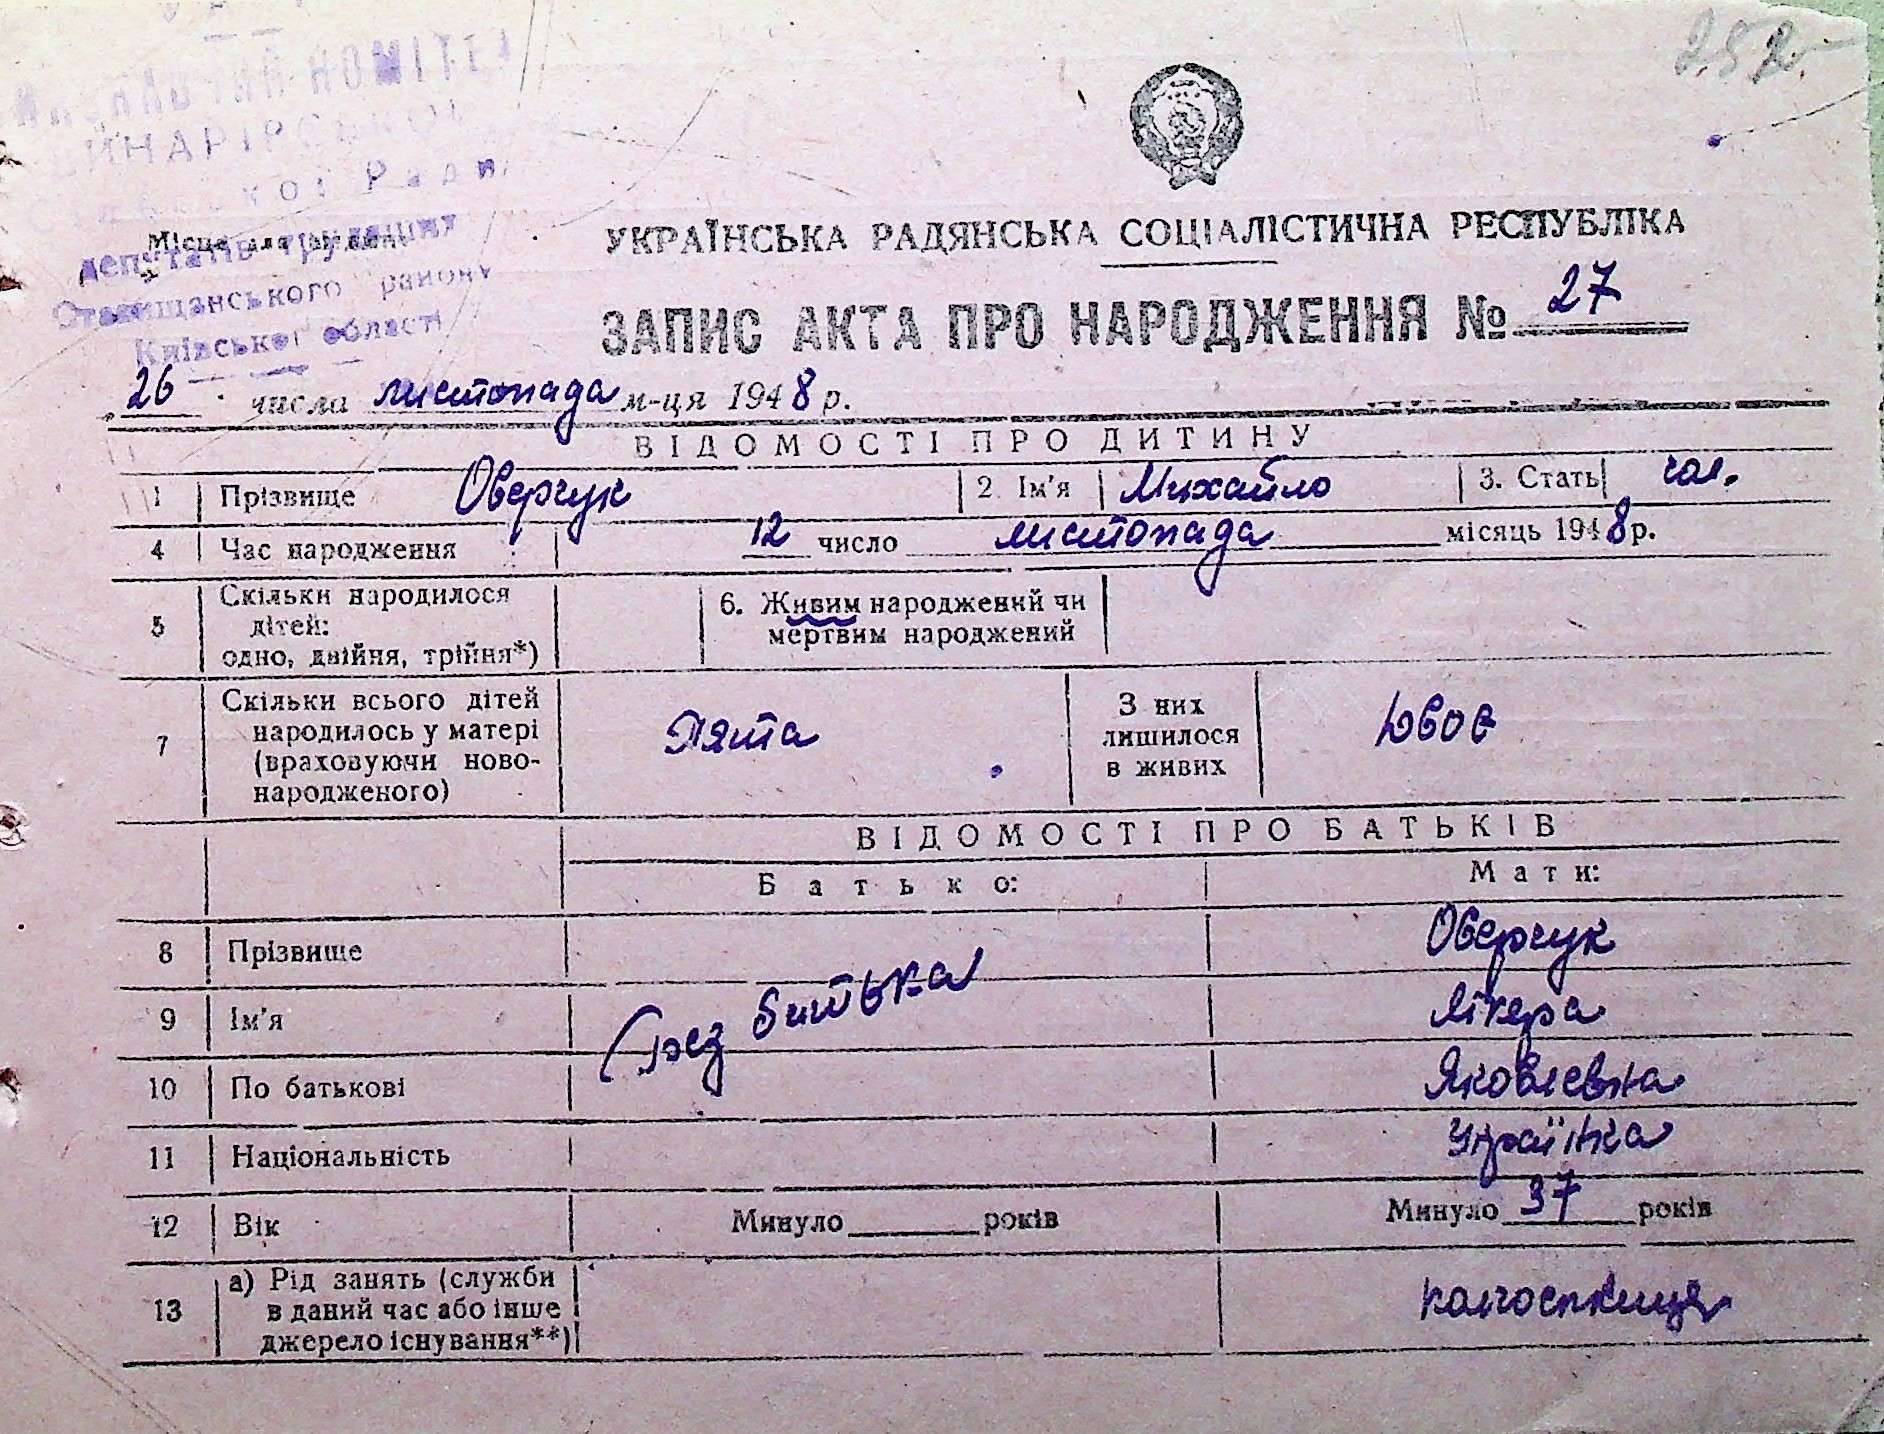 252
КОМІТЕТ
ВИНАРІРСЬКОЇ
Ради
Місце для
депутатів трудящих
Ставищанського району
Київської області
УКРАЇНСЬКА РАДЯНСЬКА СОЦІАЛІСТИЧНА РЕСПУБЛІКА
ЗАПИС АКТА ПРО НАРОДЖЕННЯ № 27
26 числа листопада м-ця 1948 р.
ВІДОМОСТІ ПРО ДИТИНУ
1 Прізвище Оверчук 2. Ім'я Михайло 3. Стать чол.
4 Час народження 12 число листопада місяць 1948 р.
5 Скільки народилося дітей: одно, двійня, трійня*) 6. Живим народжений чи мертвим народжений
7 Скільки всього дітей народилось у матері (враховуючи ново-народженого) Пята З них лишилося в живих Двоє
ВІДОМОСТІ ПРО БАТЬКІВ
Батько: Мати:
8 Прізвище Оверчук
9 Ім'я Без батька Лікера
10 По батькові Яковлевна
11 Національність Українка
12 Вік Минуло років Минуло 37 років
13 а) Рід занять (служби в даний час або інше джерело існування**) колгоспниця